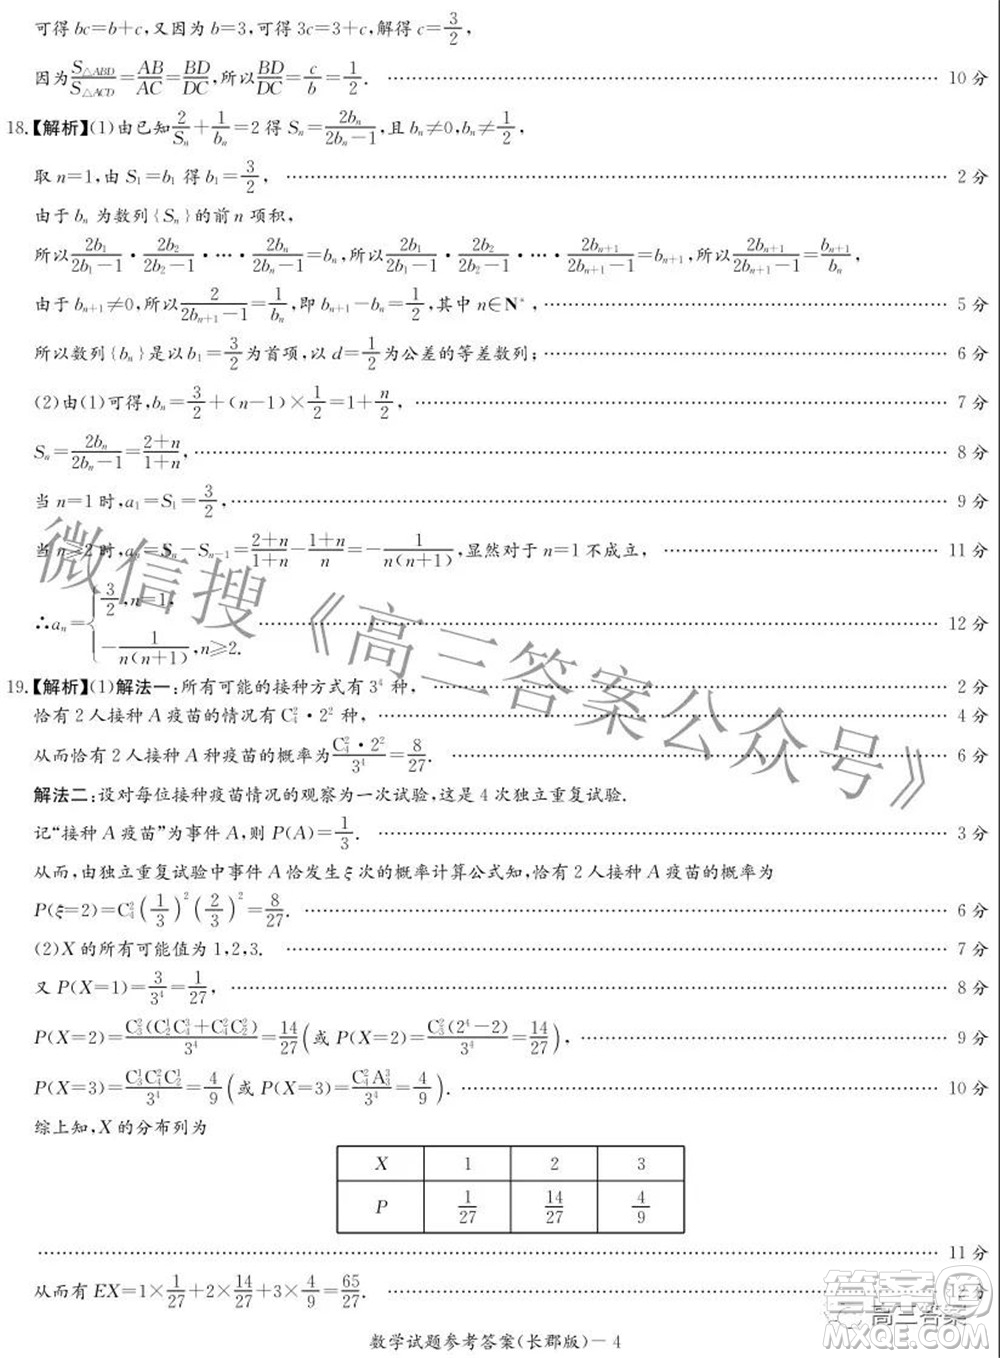 可得 bc=b+c,又因为 b=3,可得 3c=3+c,解得 c=3/2,
因为 S△ABD/S△ACD=AB/AC=BD/DC,所以 BD/DC=c/b=1/2. ……………… 10 分
18.【解析】(1)由已知 2/Sₙ+1/bₙ=2 得 Sₙ=2bₙ/(2bₙ-1),且 bₙ≠0,bₙ≠1/2,
取 n=1,由 S₁=b₁ 得 b₁=3/2, ……………… 2 分
由于 bₙ 为数列{Sₙ}的前 n 项积,
所以 2b₁/(2b₁-1)·2b₂/(2b₂-1)·…·2bₙ/(2bₙ-1)=bₙ,所以 2b₁/(2b₁-1)·2b₂/(2b₂-1)·…·2bₙ₊₁/(2bₙ₊₁-1)=bₙ₊₁,所以 2bₙ₊₁/(2bₙ₊₁-1)=bₙ₊₁/bₙ,
由于 bₙ₊₁≠0,所以 2/(2bₙ₊₁-1)=1/bₙ,即 bₙ₊₁-bₙ=1/2,其中 n∈N*, ……………… 5 分
所以数列{bₙ}是以 b₁=3/2 为首项,以 d=1/2 为公差的等差数列; ……………… 6 分
(2)由(1)可得,bₙ=3/2+(n-1)×1/2=1+n/2, ……………… 7 分
Sₙ=2bₙ/(2bₙ-1)=(2+n)/(1+n), ……………… 8 分
当 n=1 时,a₁=S₁=3/2, ……………… 9 分
当 n≥2 时,aₙ=Sₙ-Sₙ₋₁=(2+n)/(1+n)-(1+n)/n=-1/(n(n+1)),显然对于 n=1 不成立, ……………… 11 分
∴aₙ={3/2,n=1, -1/(n(n+1)),n≥2. ……………… 12 分
19.【解析】(1)解法一:所有可能的接种方式有 3⁴ 种, ……………… 2 分
恰有 2 人接种 A 疫苗的情况有 C₄²·2² 种, ……………… 4 分
从而恰有 2 人接种 A 种疫苗的概率为 C₄²·2²/3⁴=8/27. ……………… 6 分
解法二:设对每位接种疫苗情况的观察为一次试验,这是 4 次独立重复试验.
记“接种 A 疫苗”为事件 A,则 P(A)=1/3. ……………… 3 分
从而,由独立重复试验中事件 A 恰发生 ξ 次的概率计算公式知,恰有 2 人接种 A 疫苗的概率为
P(ξ=2)=C₄²(1/3)²(2/3)²=8/27. ……………… 6 分
(2)X 的所有可能值为 1,2,3. ……………… 7 分
又 P(X=1)=3/3⁴=1/27, ……………… 8 分
P(X=2)=C₃²(C₂¹C₄³+C₄²C₂²)/3⁴=14/27(或 P(X=2)=C₃²(2⁴-2)/3⁴=14/27), ……………… 9 分
P(X=3)=C₃¹C₄²C₂¹/3⁴=4/9(或 P(X=3)=C₄²A₃³/3⁴=4/9). ……………… 10 分
综上知,X 的分布列为
X 1 2 3
P 1/27 14/27 4/9
……………… 11 分
从而有 EX=1×1/27+2×14/27+3×4/9=65/27. ……………… 12 分
数学试题参考答案(长郡版)－4
微信搜《高三答案公众号》
答案圈
高三答案
MXQE.COM